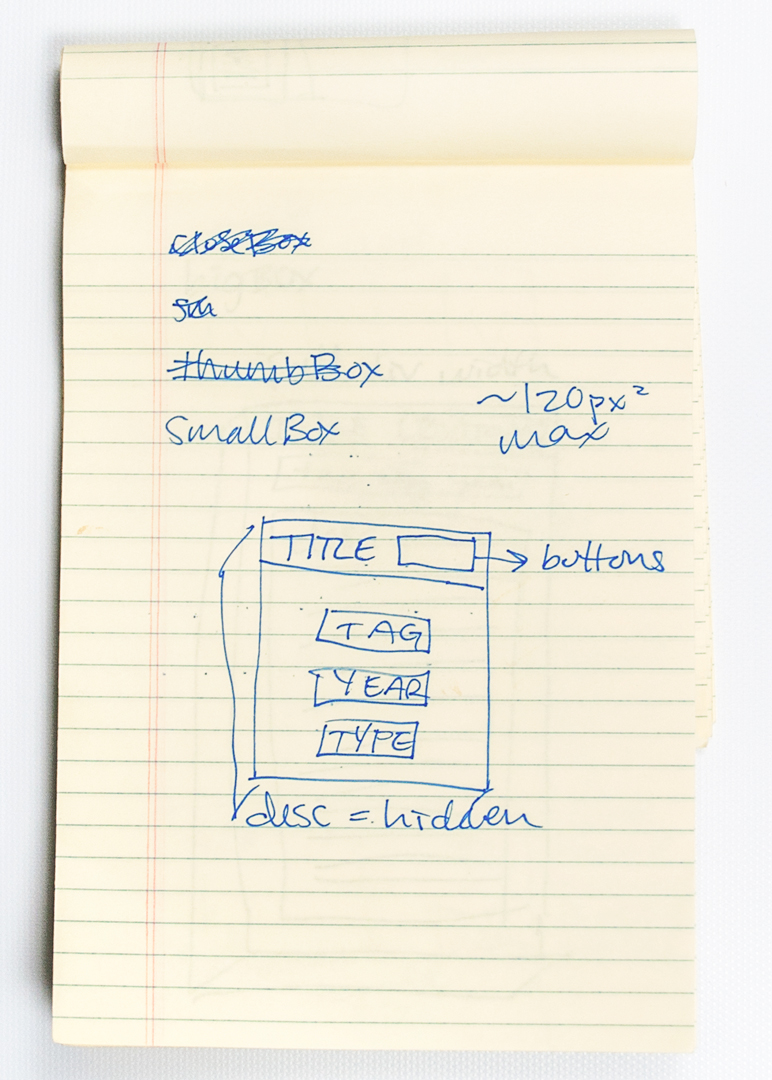 closeBox
thumbBox
smallBox
~120px²
max
TITLE
buttons
TAG
YEAR
TYPE
desc = hidden